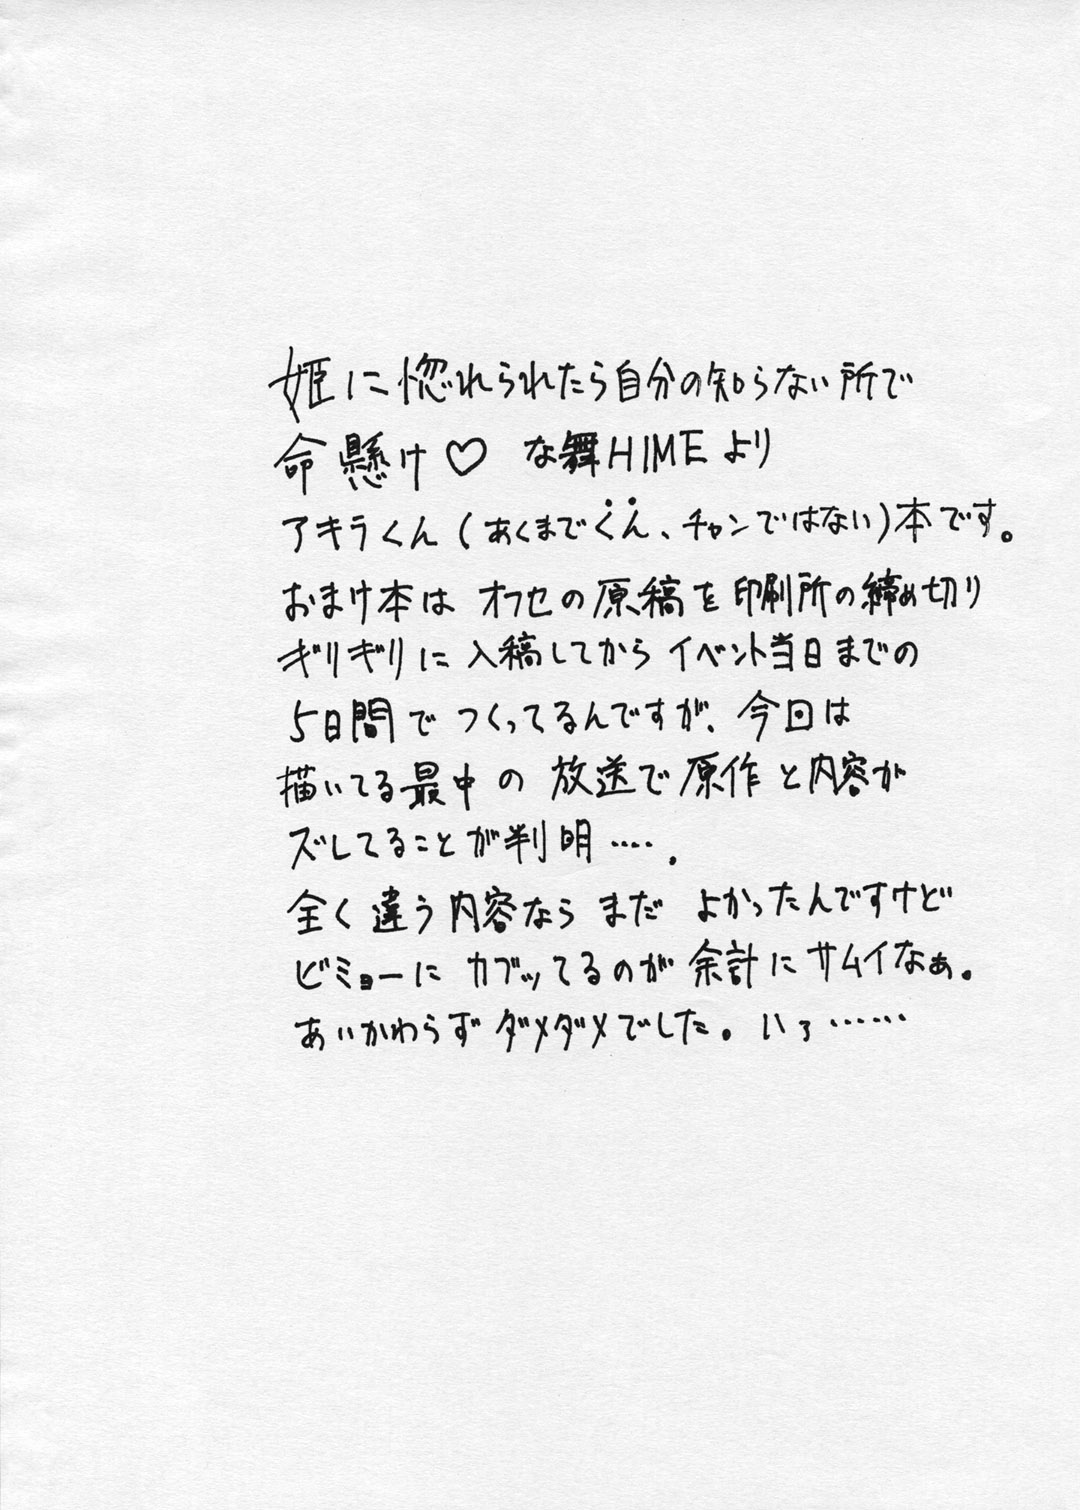 姫に惚れられたら自分の知らない所で
命懸け♡ な舞HIMEより
アキラくん(あくまでくん、チャンではない)本です。
おまけ本は オフセの原稿を印刷所の締め切り
ギリギリに入稿してから イベント当日までの
5日間で つくってるんですが、今回は
描いてる最中の 放送で原作と内容が
ズレてることが判明‥‥.
全く違う内容なら まだ よかったんですけど
ビミョーに カブッてるのが余計にサムイなぁ。
あいかわらずダメダメでした。